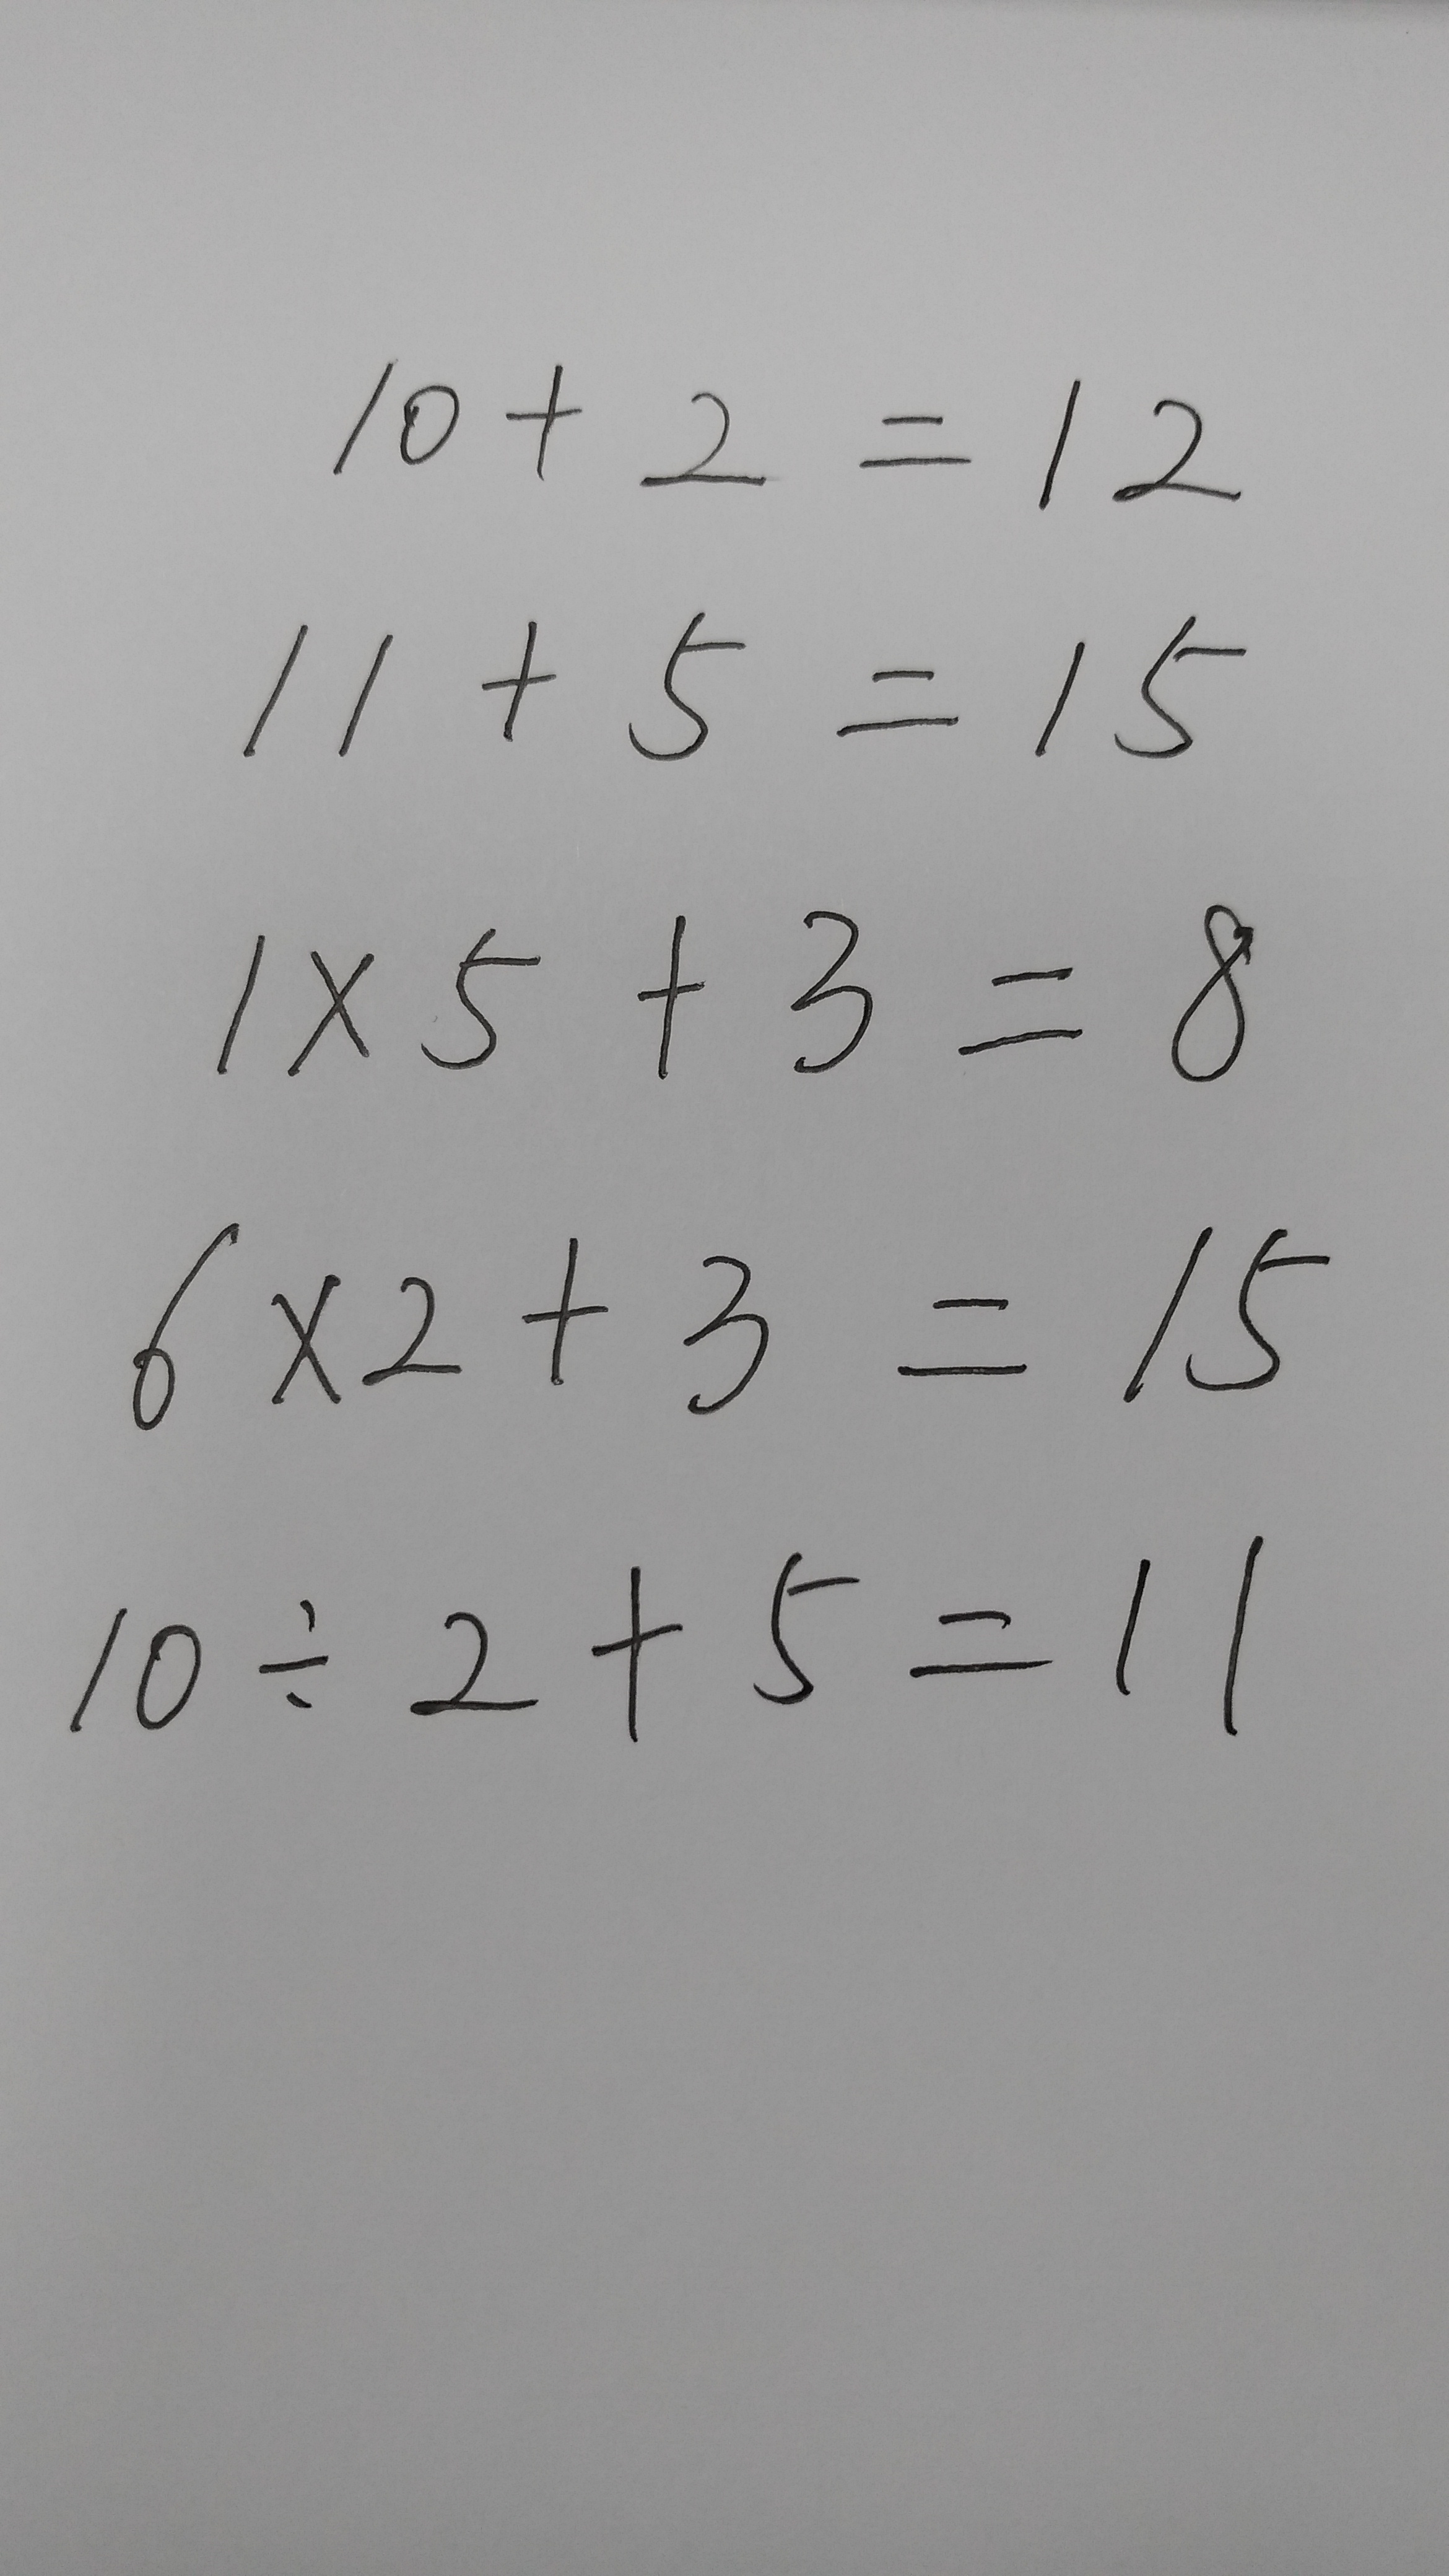 10 + 2 = 12
11 + 5 = 15
1 × 5 + 3 = 8
6 × 2 + 3 = 15
10 ÷ 2 + 5 = 11